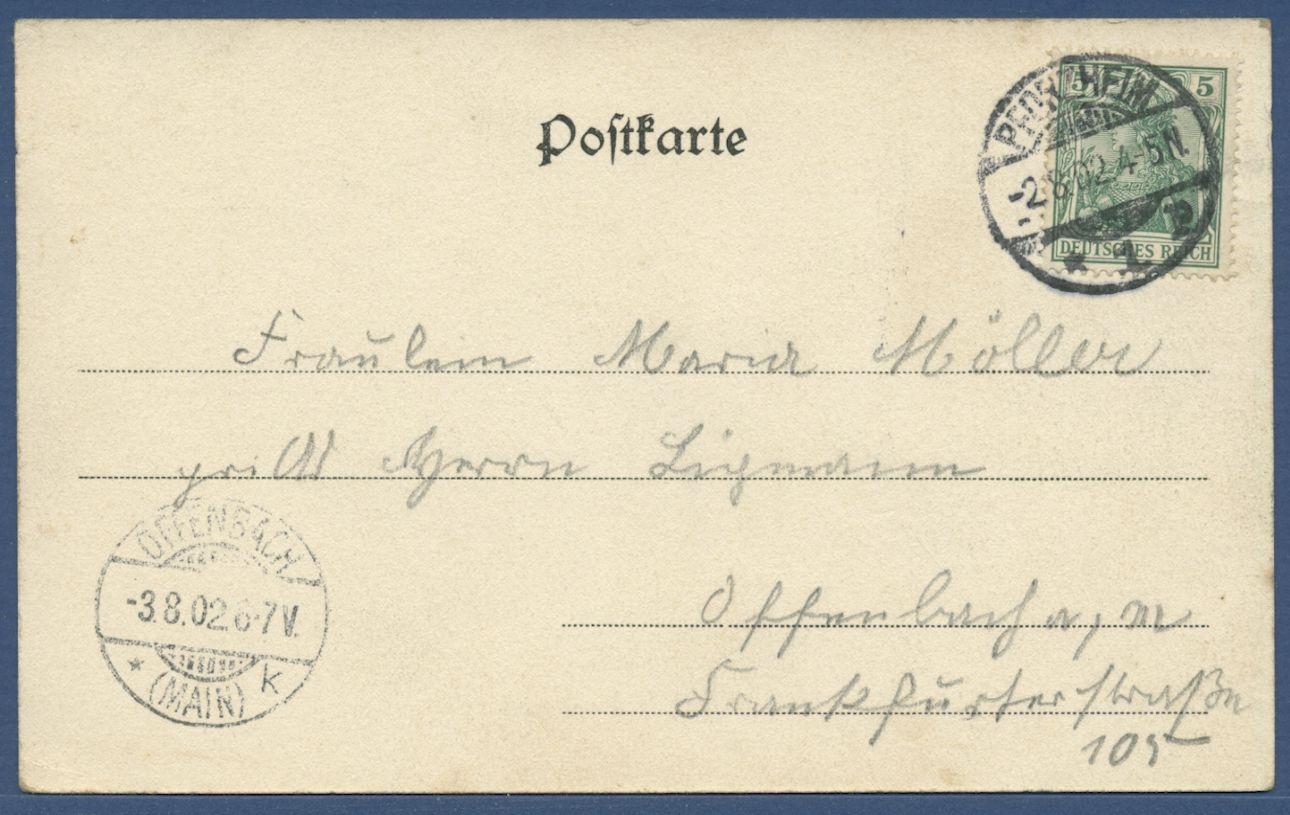 Postkarte
5 5
DEUTSCHES REICH
PFORZHEIM
-2.8.02.4-5N.
* 1. P
Fräulein Maria Möller
Herrn Ligmann
Offenbach a, M
Frankfurterstraße
105
OFFENBACH
-3.8.02.6-7V.
* (MAIN) k